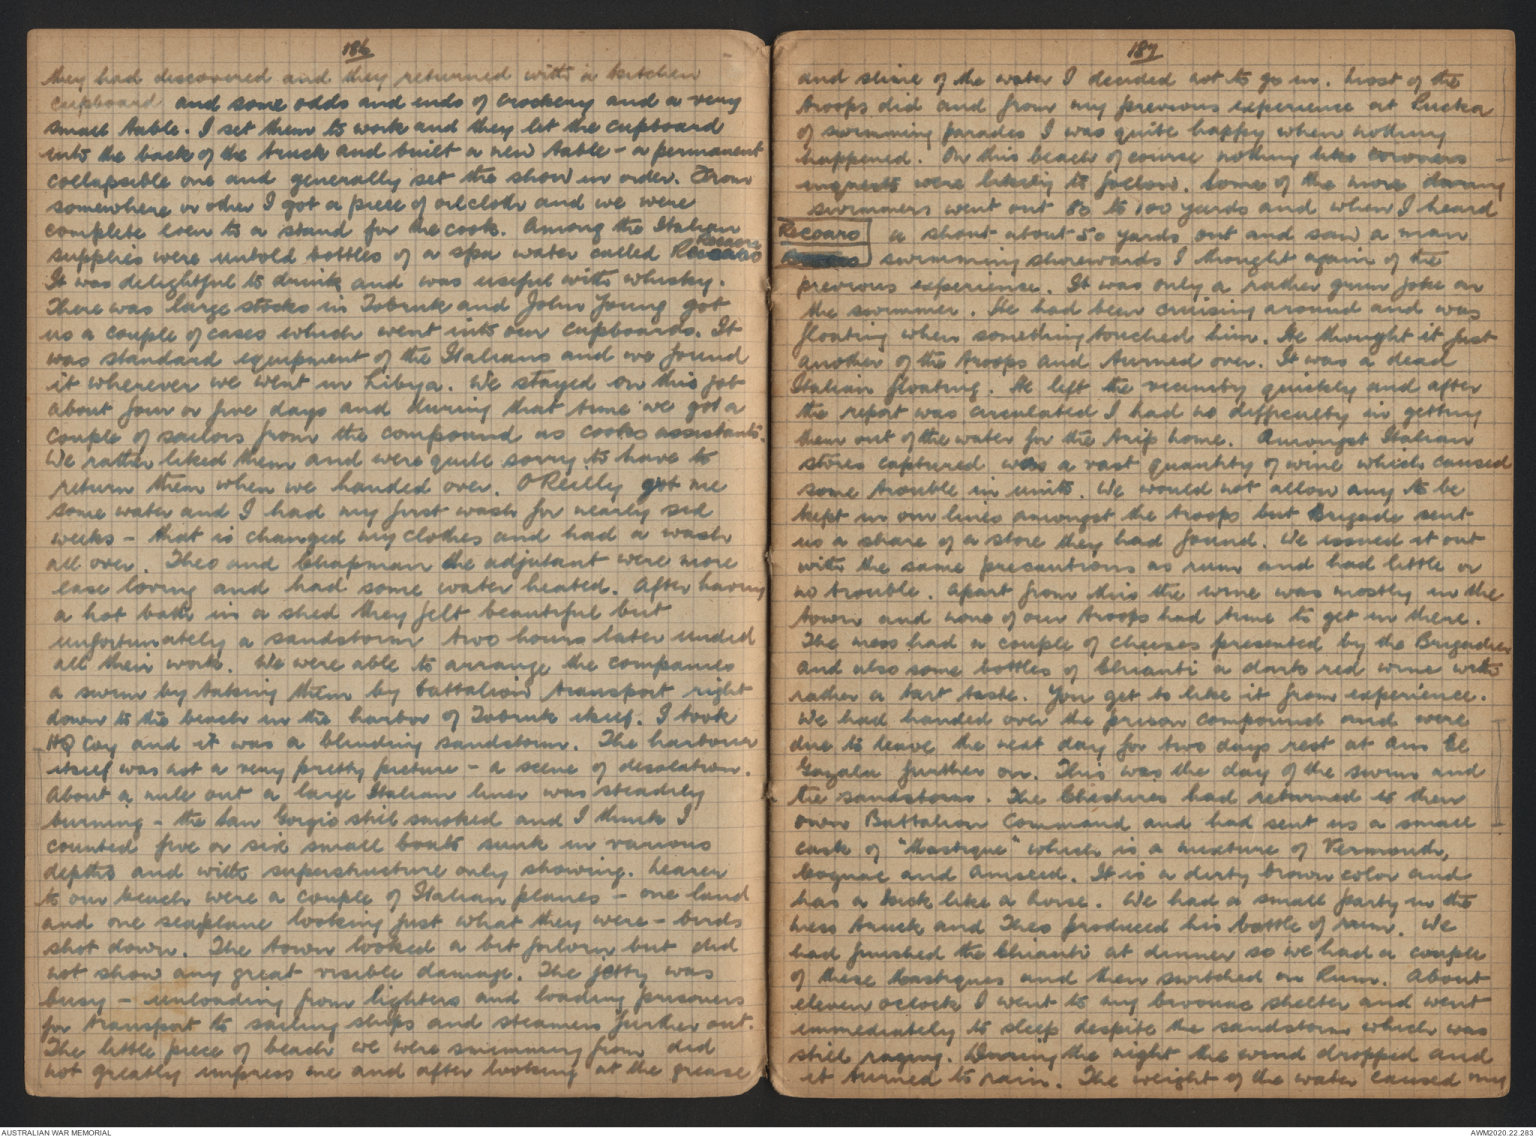 186
they had discovered and they returned with a kitchen
cupboard and some odds and ends of crockery and a very
small table. I set them to work and they let the cupboard
into the back of the truck and built a new table - a permanent
collapsible one and generally set the show in order. From
somewhere or other I got a piece of oilcloth and we were
complete even to a stand for the cook. Among the Italian
supplies were untold bottles of a spa water called Recoaro
Recoaro
It was delightful to drink and was useful with whisky.
There was large stocks in Tobruk and John Young got
us a couple of cases which went into our cupboards. It
was standard equipment of the Italians and we found
it wherever we went in Libya. We stayed on this job
about four or five days and during that time we got a
couple of sailors from the compound as cooks assistants.
We rather liked them and were quite sorry to have to
return them when we handed over. O'Reilly got me
some water and I had my first wash for nearly six
weeks - that is changed my clothes and had a wash
all over. Theo and Chapman the adjutant were more
ease loving and had some water heated. After having
a hot bath in a shed they felt beautiful but
unfortunately a sandstorm two hours later undid
all their work. We were able to arrange the companies
a swim by taking them by battalion transport right
down to the beach in the harbor of Tobruk itself. I took
HQ Coy and it was a blinding sandstorm. The harbour
itself was not a very pretty picture - a scene of desolation.
About a mile out a large Italian liner was steadily
burning - the San Gorgio still smoked and I think I
counted five or six small boats sunk in various
depths and with superstructure only showing. Nearer
to our beach were a couple of Italian planes - one land
and one seaplane looking just what they were - birds
shot down. The town looked a bit forlorn but did
not show any great visible damage. The jetty was
busy - unloading from lighters and loading prisoners
for transport to sailing ships and steamers further out.
The little piece of beach we were swimming from did
not greatly impress me and after looking at the grease
187
and slime of the water I decided not to go in. Most of the
troops did and from my previous experience at Lucka
of swimming parades I was quite happy when nothing
happened. On this beach of course nothing like coroners
inquests were likely to follow. Some of the more daring
swimmers went out 80 to 100 yards and when I heard
Recoaro
a shout about 50 yards out and saw a man
swimming shorewards I thought again of the
previous experience. It was only a rather grim joke on
the swimmer. He had been cruising around and was
floating when something touched him. He thought it just
another of the troops and turned over. It was a dead
Italian floating. He left the vicinity quickly and after
the report was circulated I had no difficulty in getting
them out of the water for the trip home. Amongst Italian
stores captured was a vast quantity of wine which caused
some trouble in units. We would not allow any to be
kept in our lines amongst the troops but Brigade sent
us a share of a store they had found. We issued it out
with the same precautions as rum and had little or
no trouble. Apart from this the wine was mostly in the
town and none of our troops had time to get in there.
The mess had a couple of cheeses presented by the Brigadier
and also some bottles of Chianti a dark red wine with
rather a tart taste. You get to like it from experience.
We had handed over the prison compound and were
due to leave the next day for two days rest at Ain El
Gazala further on. This was the day of the swim and
the sandstorm. The Cheshires had returned to their
own Battalion Command and had sent us a small
cask of "Mastique" which is a mixture of Vermouth,
Cognac and Aniseed. It is a dirty brown color and
has a kick like a horse. We had a small party in the
mess truck and Theo produced his bottle of rum. We
had finished the Chianti at dinner so we had a couple
of these Mastiques and then switched on Rum. About
eleven oclock I went to my bivouac shelter and went
immediately to sleep despite the sandstorm which was
still raging. During the night the wind dropped and
it turned to rain. The weight of the water caused my
AUSTRALIAN WAR MEMORIAL
AWM2020.22.283